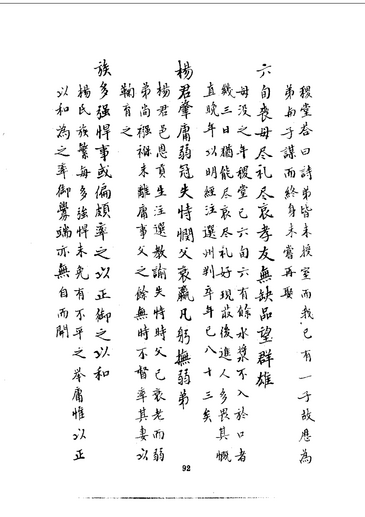 稷堂答曰詩弟皆未授室而我已有一子故應為
弟每子謀而終身未嘗再娶
六旬喪母尽礼尽哀孝友無缺品望群雄
母没之年稷堂已六旬六有餘水漿不入於口者
幾三日猶能尽哀尽礼好現故後進人多畏其慨
直晚年以明經注選州判卒年已八十三矣
楊君肇庸弱冠失恃憫父衰羸凡躬撫弱弟
楊君邑恩貢生注選教諭失恃時父已衰老而弱
弟尚襁褓未離庸事父之餘無時不督率其妻以
鞠育之
族多强悍事或偏頗率之以正御之以和
楊氏族繁每多强悍未免有不平之举庸惟以正
以和為之率御釁端亦無自而開
92